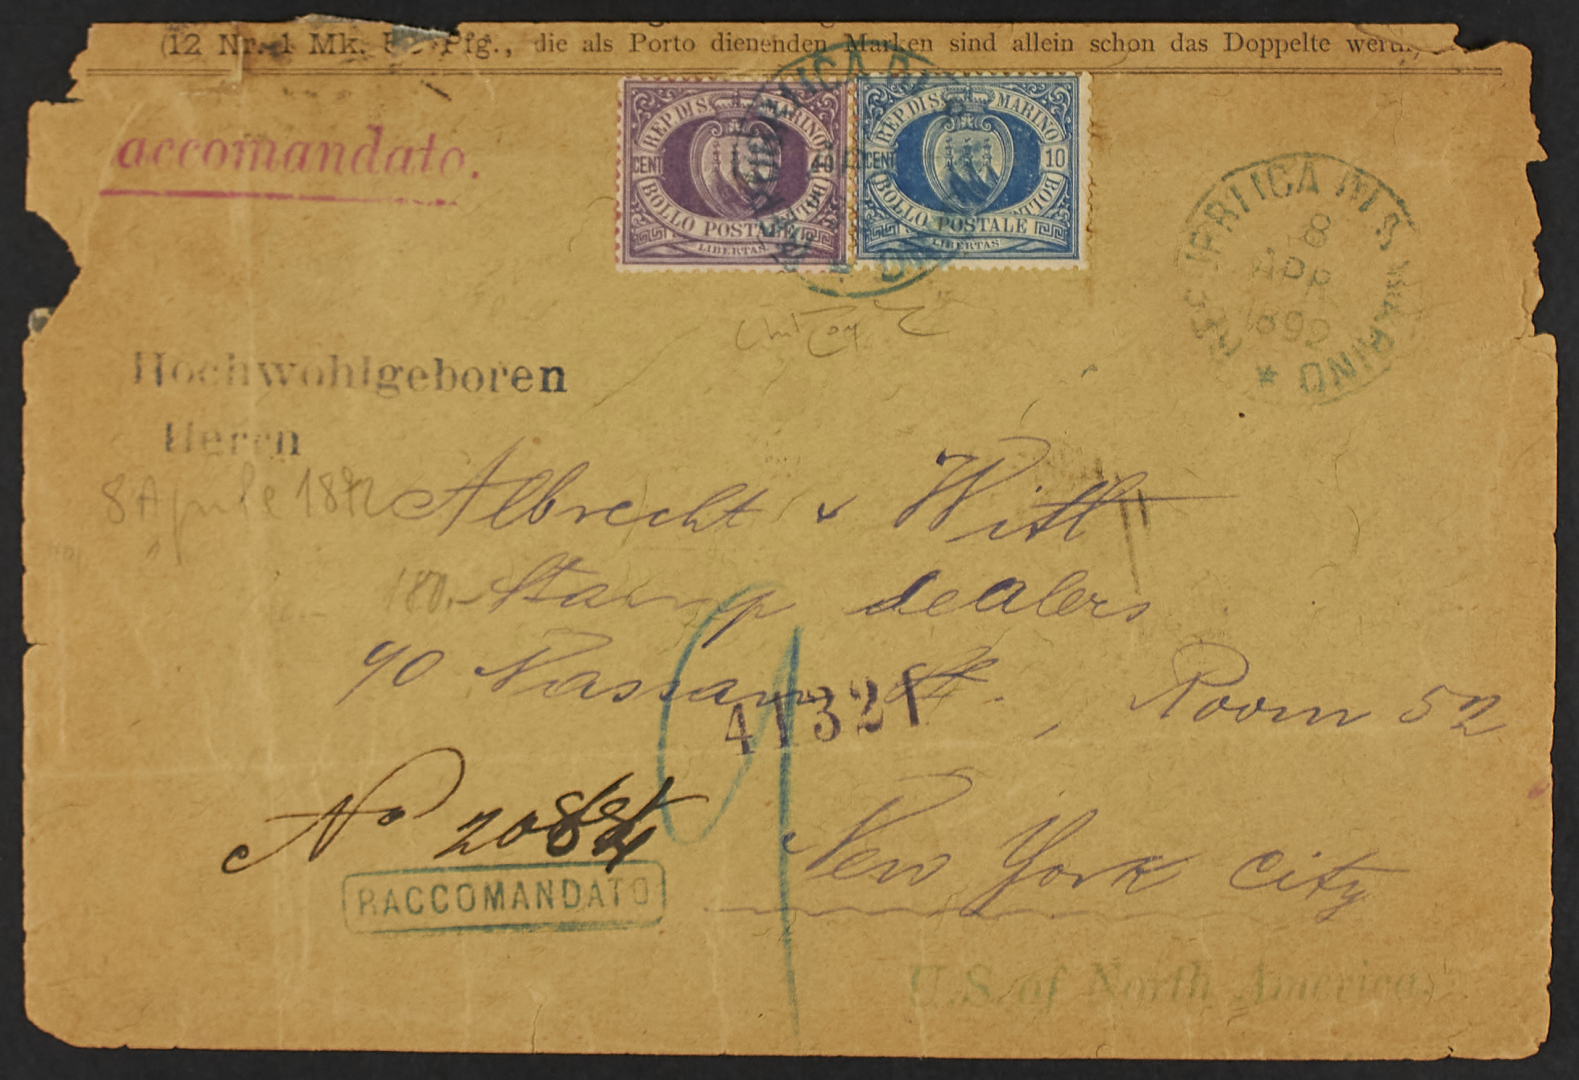 (12 Nr. 1 Mk. Pfg., die als Porto dienenden Marken sind allein schon das Doppelte
accomandato.
REP. DI S. MARINO
CENT 40
BOLLO POSTALE
LIBERTAS
REP. DI S. MARINO
CENT 10
BOLLO POSTALE
LIBERTAS
REPUBBLICA DI S. MARINO
8
APR
Hochwohlgeboren
Herrn
8 Aprile 1892
Albrecht & Witt
180.-
Stamp dealers
90 Nassau St., Room 52
41321
No
RACCOMANDATO
New York City
U.S. of North America.